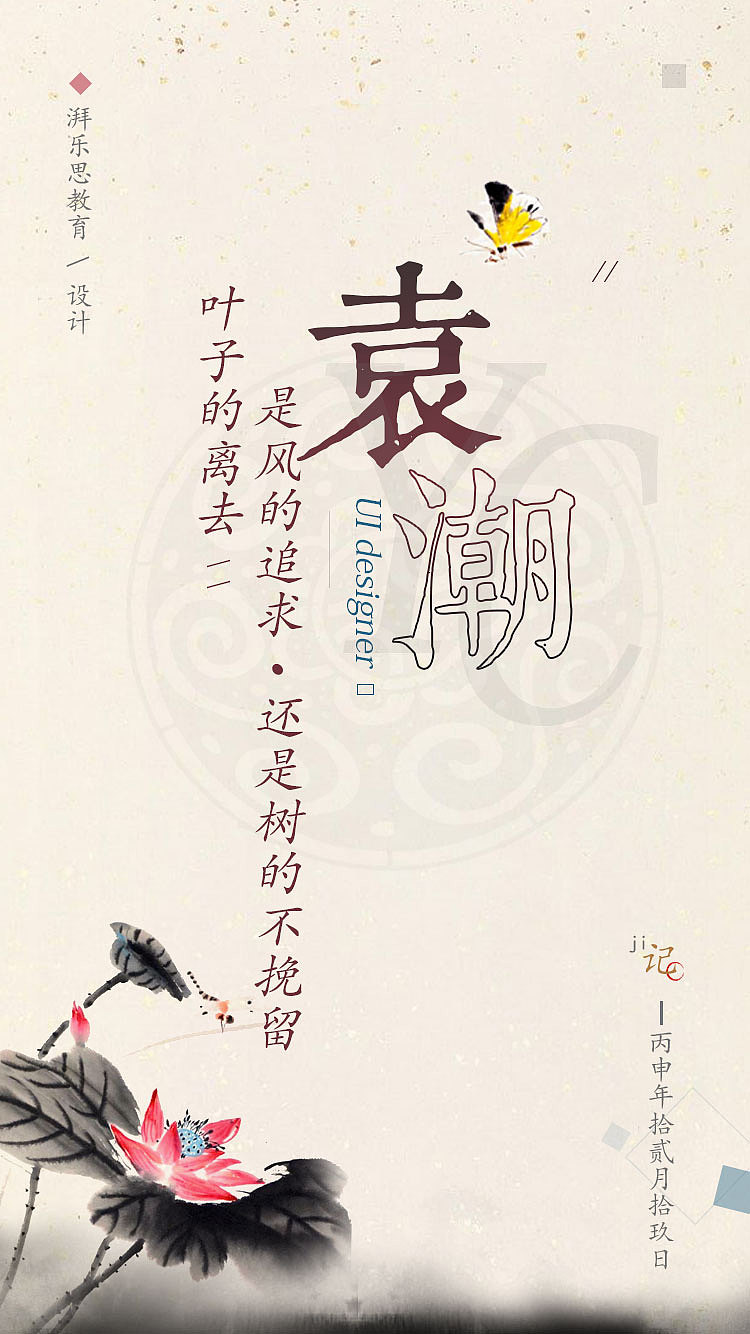 湃乐思教育／设计
袁
潮
YC
UI designer
叶子的离去
是风的追求·还是树的不挽留
ji
记
丙申年拾贰月拾玖日